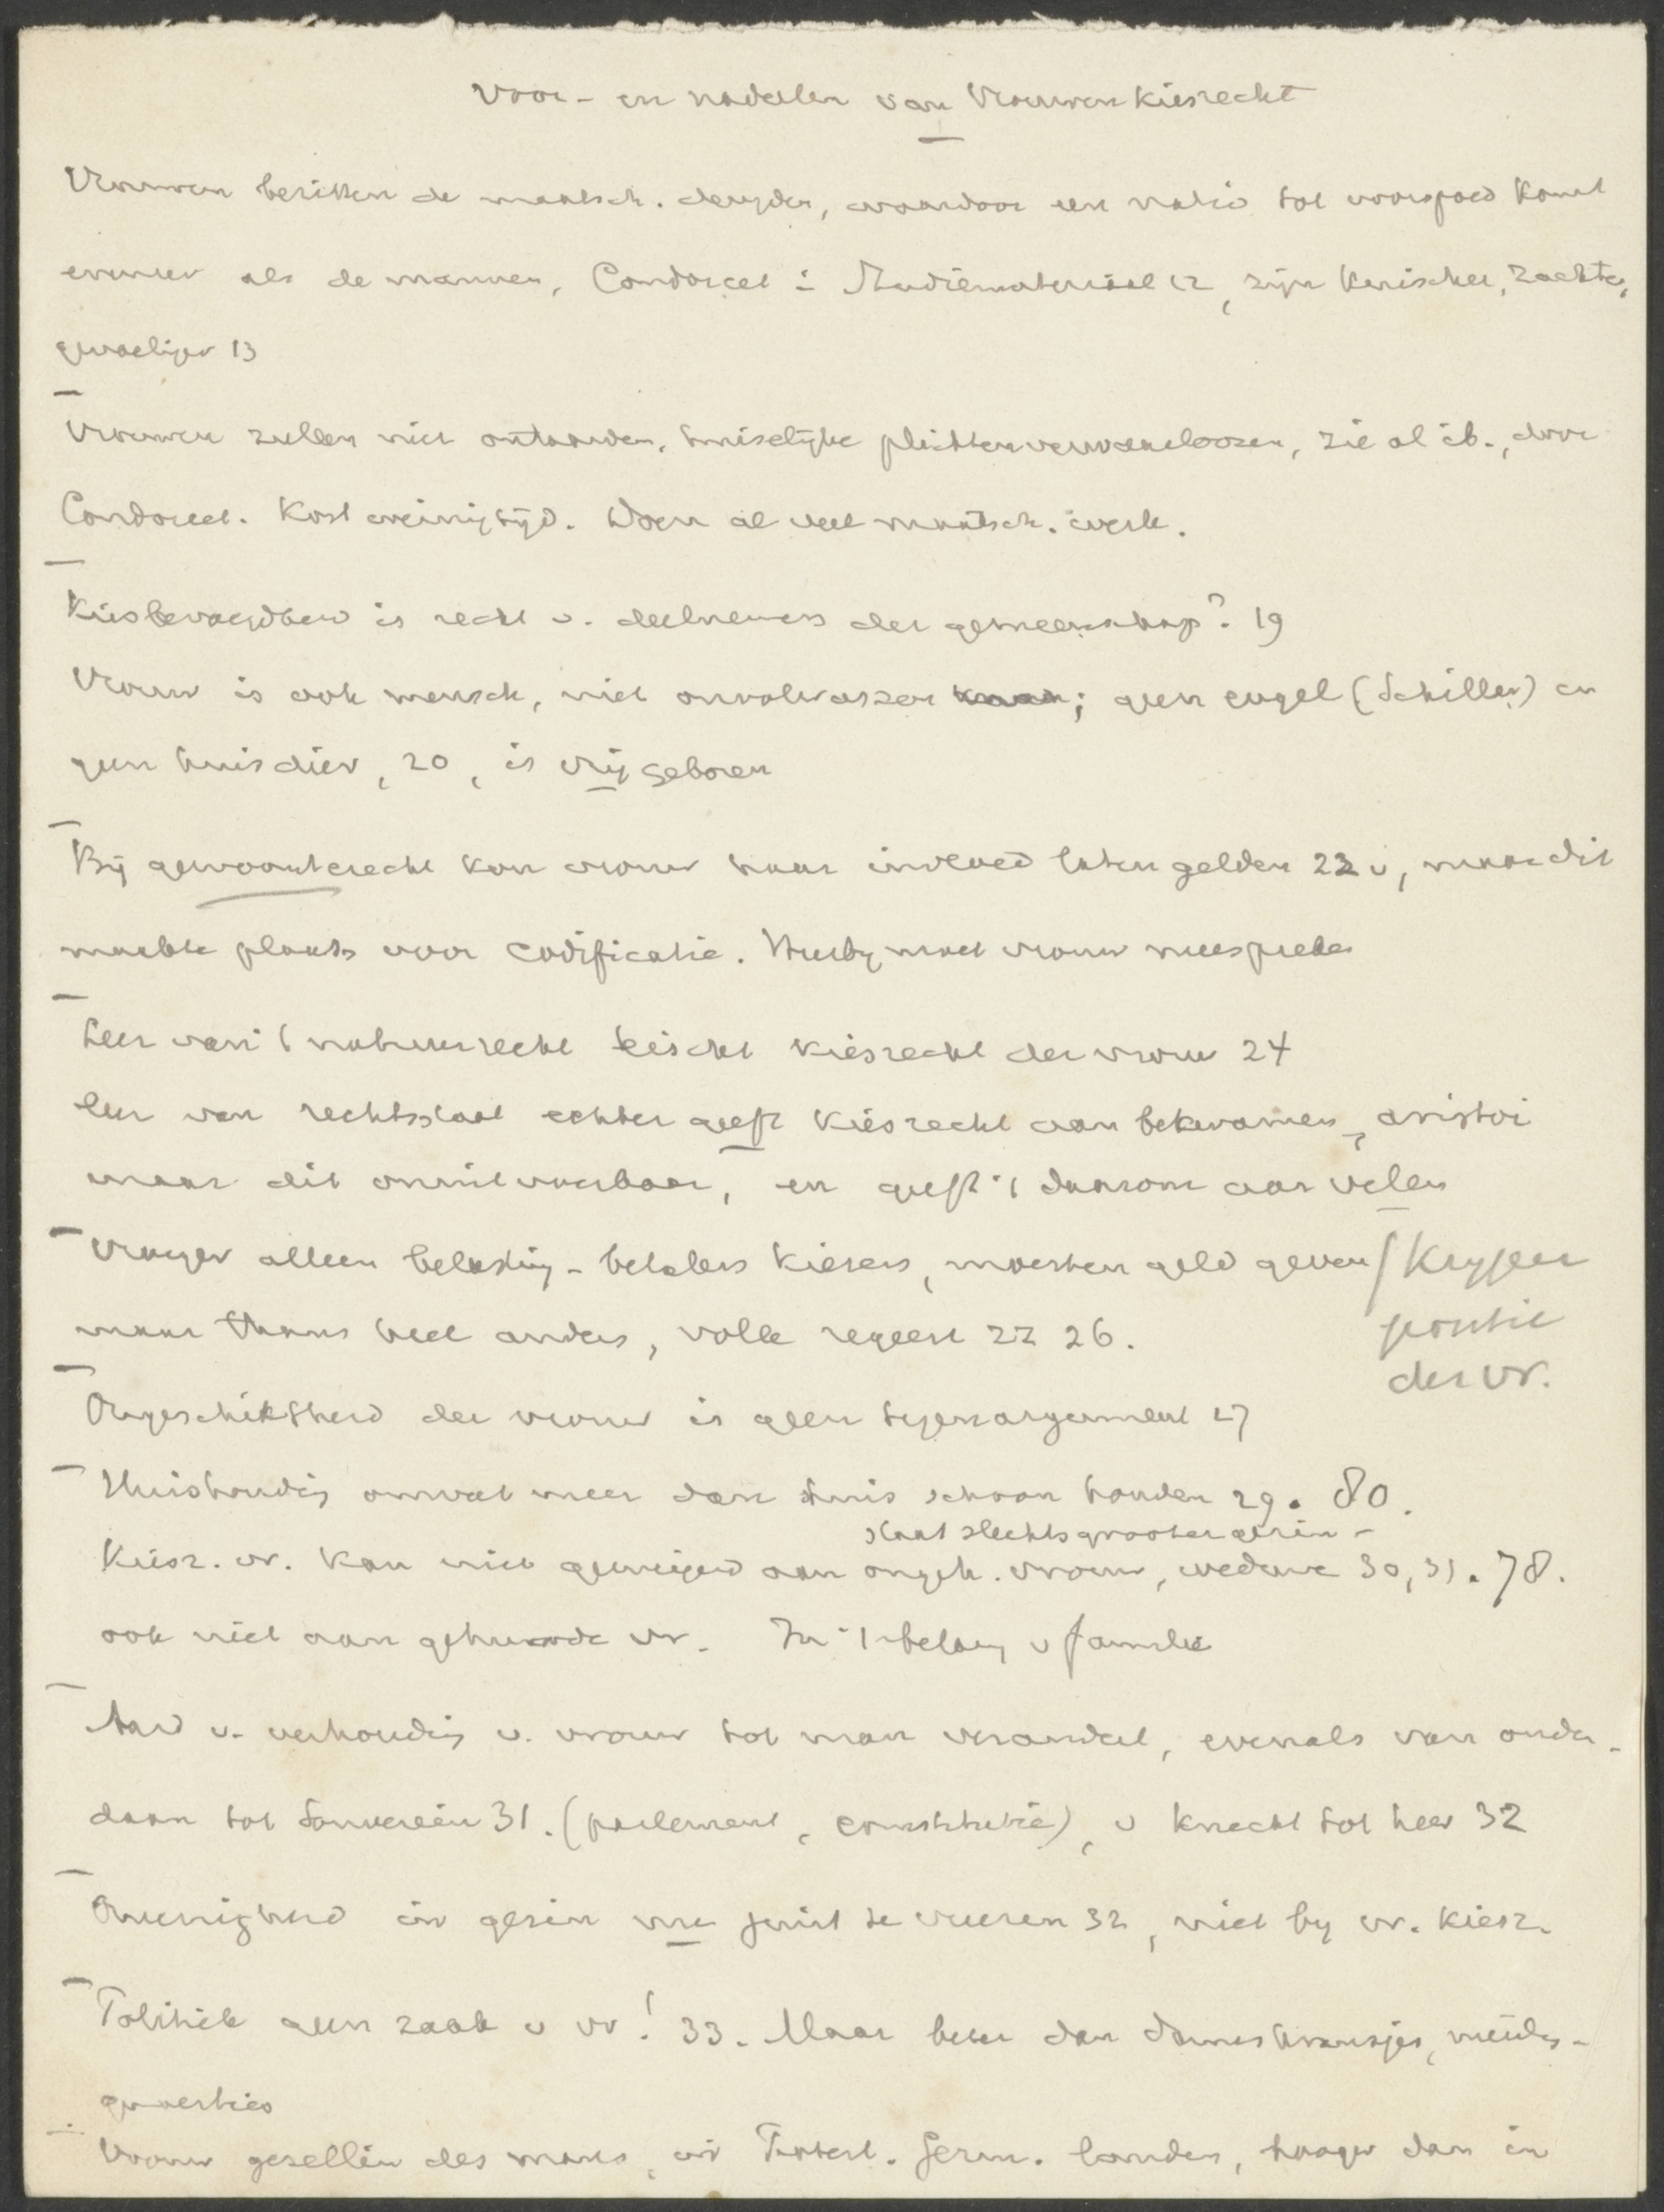 Voor- en nadeelen van Vrouwenkiesrecht
Vrouwen bezitten de maatsch. deugden, waardoor een natie tot voorspoed komt
evenzeer als de mannen, Condorcet : Studiemateriaal 12, zijn kuischer, zachter,
gevoeliger 13
Vrouwen zullen niet ontaarden, huiselijke plichten verwaarloozen, zie al ib., door
Condorcet. Kost weinig tijd. Doen al veel maatsch. werk.
Kiesbevoegdheid is recht v. deelnemers der gemeenschap? 19
Vrouw is ook mensch, niet onvolwassen; geen engel (Schiller) en
geen huisdier, 20, is vrij geboren
Bij gewoonterecht kon vrouw haar invloed laten gelden 22 v, maar dit
maakte plaats voor codificatie. Hierbij moet vrouw meespreken
Leer van 't natuurrecht eischt kiesrecht der vrouw 24
Leer van rechtsstaat echter geeft kiesrecht aan bekwamen, aristoi
maar dit onuitvoerbaar, en geeft 't daarom aan velen
Vroeger alleen belasting-betalers kiezers, moesten geld geven / Kuyper
maar thans heel anders, volk regeert zz 26. positie
der vr.
Ongeschiktheid der vrouw is geen tegenargument 27
Huishouding omvat meer dan huis schoon houden 29. 80.
staat slechts grooter gezin -
Kiesr. vr. kan niet geweigerd aan ongeh. vrouw, weduwe 30, 31. 78.
ook niet aan gehuwde vr. In 't belang v familie
Aard v. verhouding v. vrouw tot man verandert, evenals van onder-
daan tot souverein 31. (parlement, constitutie), v knecht tot heer 32
Oneenigheid in gezin nu juist te vreezen 32, niet by vr. kiesr.
Politiek geen zaak v vr! 33. Maar beter dan dameskransjes, nieuwtjes-
Vrouw gezellin des mans, in Protest. Germ. landen, hooger dan in